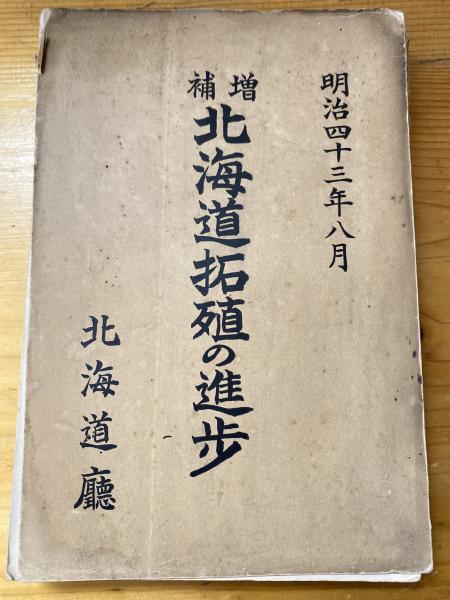 明治四十三年八月
増補
北海道拓殖の進歩
北海道廳